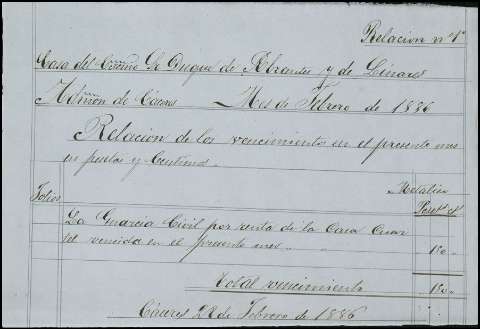 Relacion nº 1º
Casa del Excmo Sr Duque de Abrantes y de Linares
Admon de Cáceres Mes de Febrero de 1886
Relacion de los vencimientos en el presente mes
en pesetas y centimos.
Metalico
Folios Peset. ct
La Guardia Civil por renta de la Casa Cuar
tel vencida en el presente mes
Total vencimiento
Cáceres 28 de Febrero de 1886